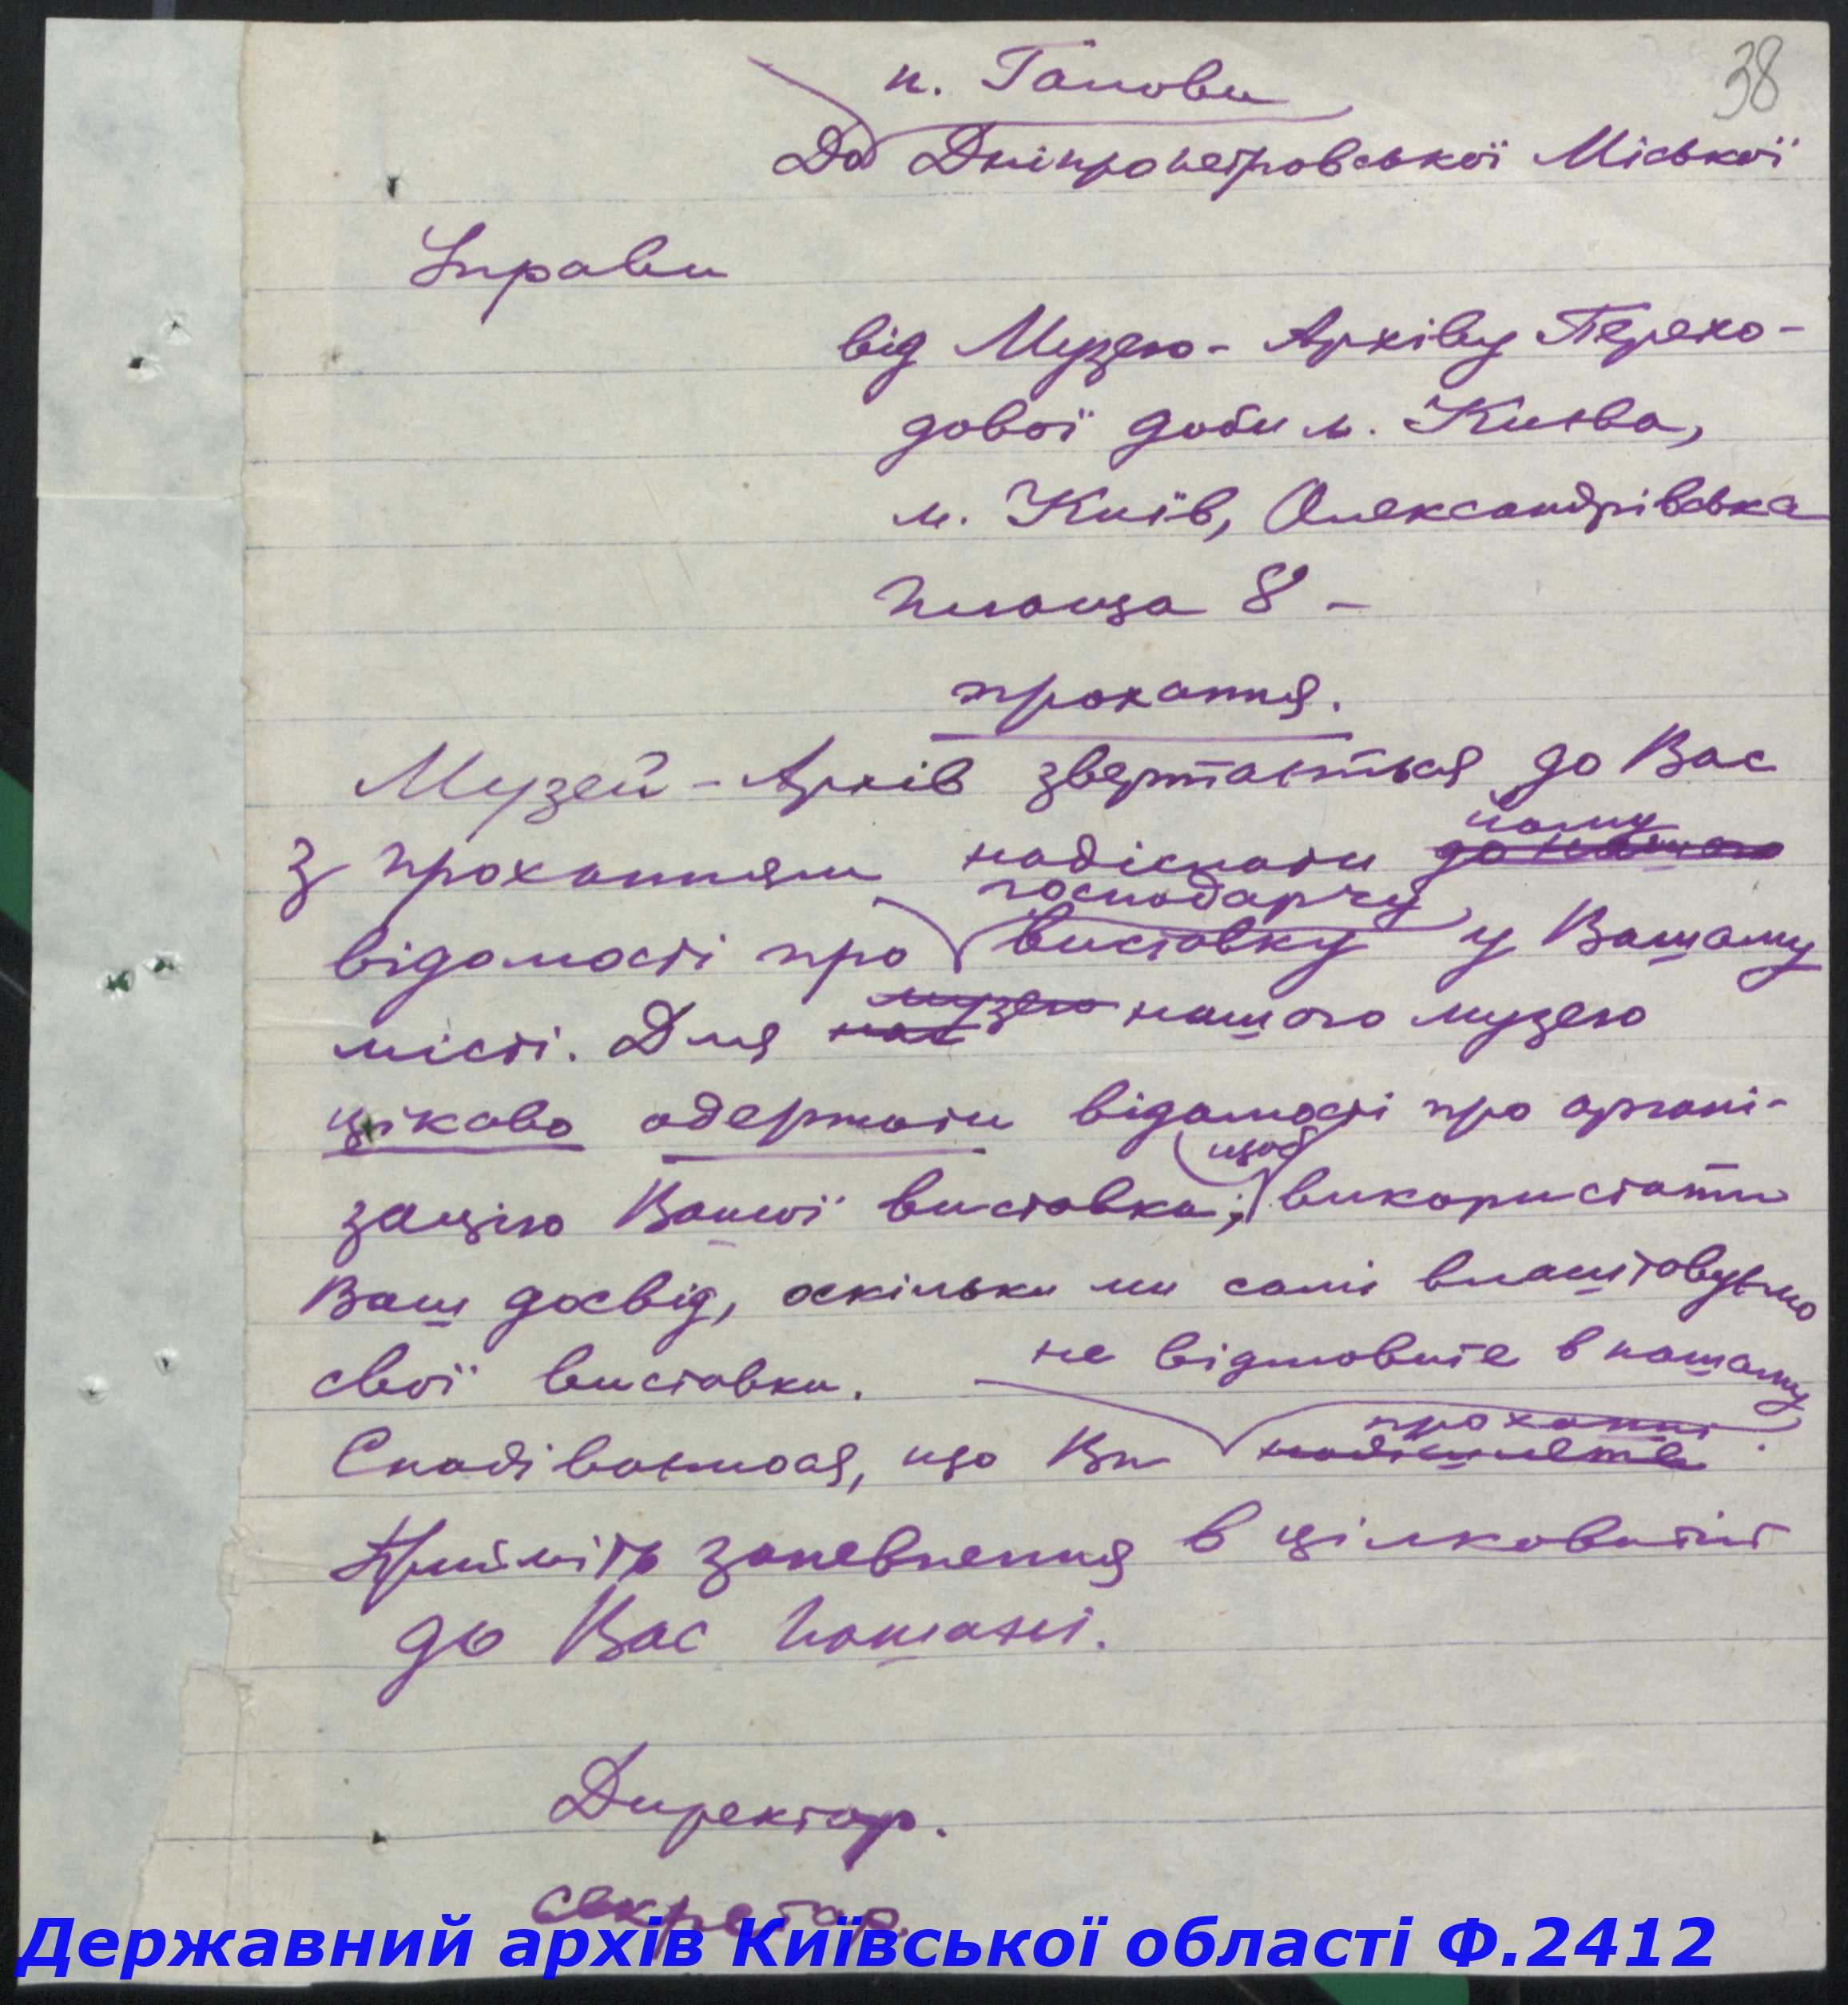 38
п. Голови
До Дніпропетровської Міської
Управи
від Музею-Архіву Перехо-
дової доби м. Києва,
м. Київ, Олександрівська
площа 8 -
прохання.
Музей-Архів звертається до Вас
йому
з проханням надіслати до нашого
господарчу
відомості про виставку у Вашому
музею
місті. Для нас нашого музею
цікаво одержати відомості про органі-
щоб
зацію Вашої виставки, використати
Ваш досвід, оскільки ми самі влаштовуємо
свої виставки.
не відмовите в нашому
проханні.
Сподіваємося, що Ви надішлете
Прийміть запевнення в цілковитій
до Вас пошані.
Директор.
секретар.
Державний архів Київської області Ф.2412